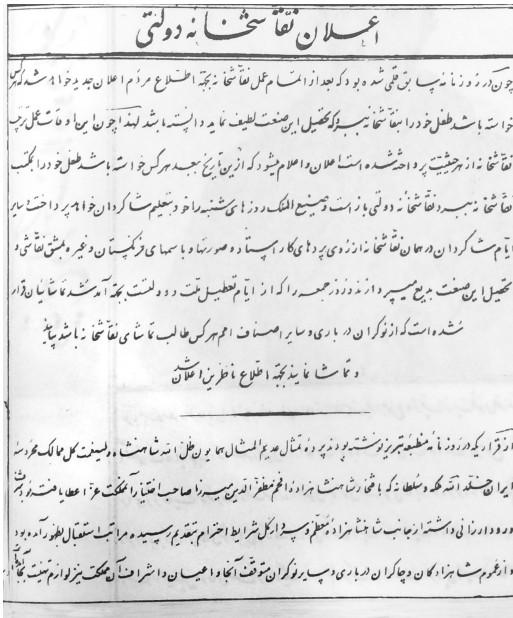 اعلان نقاشخانه دولتی
چون در روزنامه سابق قلمی شده بود که بعد از اتمام عمل نقاشخانه بجهة اطلاع مردم اعلان جدید خواهد شد که هر کس
خواسته باشد طفل خود را بنقاشخانه سپرد که تحصیل این صنعت لطیف نماید دانسته باشد لهذا چون این اوقات عمل ترتیب
نقاشخانه از هر حیثیت پرداخته شده است اعلان و اعلام میشود که ازین تاریخ ببعد هر کس خواسته باشد طفل خود را بمکتب
نقاشخانه سپرد نقاشخانه دولتی باز است و صنیع الملک روزهای شنبه را خود بتعلیم شاگردان خواهد پرداخت و سایر
ایام شاگردان در همان نقاشخانه از روی پردهای کار استاد و صورتها و باسمهای فرنگستان و غیره بمشق نقاشی و
تحصیل این صنعت بدیع میپردازند و روز جمعه را که از ایام تعطیل ملت و دولتست بجهة آمد شد تماشائیان قرار
شده است که از نوکران درباری و سایر اصناف امم هر کس طالب تماشای نقاشخانه باشد بیاید
و تماشا نماید بجهة اطلاع ناظرین اعلان شد
از قراریکه در روزنامه منطبعه تبریز نوشته بودند پرده تمثال عدیم المثال همایون ظل الله شاهنشاه ولینعمت کل ممالک محروسه
ایران خلد الله ملکه و سلطانه که بافتخار شاهنشاهزاده افخم مظفرالدین میرزا صاحب اختیار آن مملکت عز اعطا یافته بود
ورود ارزانی داشته از جانب شاهنشاهزاده معظم و پرداز کل شرایط احترام بتقدیم رسیده مراتب استقبال بظهور آمده بود
و از عموم شاهزادگان و چاکران درباری و سایر نوکران متوقف آنجا و اعیان و اشراف آن مملکت نیز لوازم تهنیت